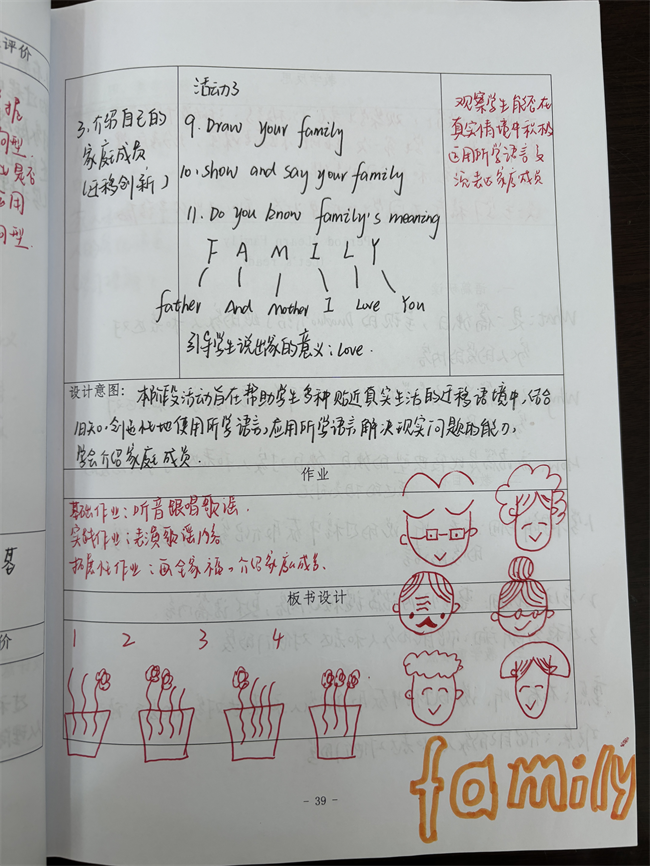 评价
句型
是否
句型.
3.介绍自己的
家庭成员
(迁移创新)
活动3
9. Draw your family
10. show and say your family
11. Do you know family's meaning
F A M I L Y
father And Mother I Love You
引导学生说出家的意义:Love.
观察学生能否在
真实情境中积极
运用所学语言
家庭成员
设计意图: 本阶段活动旨在帮助学生多种贴近真实生活的迁移语境中,结合
旧知,创造性地使用所学语言,应用所学语言解决现实问题的能力,
学会介绍家庭成员.
作业
基础作业:听音跟唱歌谣.
实践作业:表演歌谣内容
拓展性作业:画全家福,介绍家庭成员.
板书设计
1 2 3 4
- 39 -
family